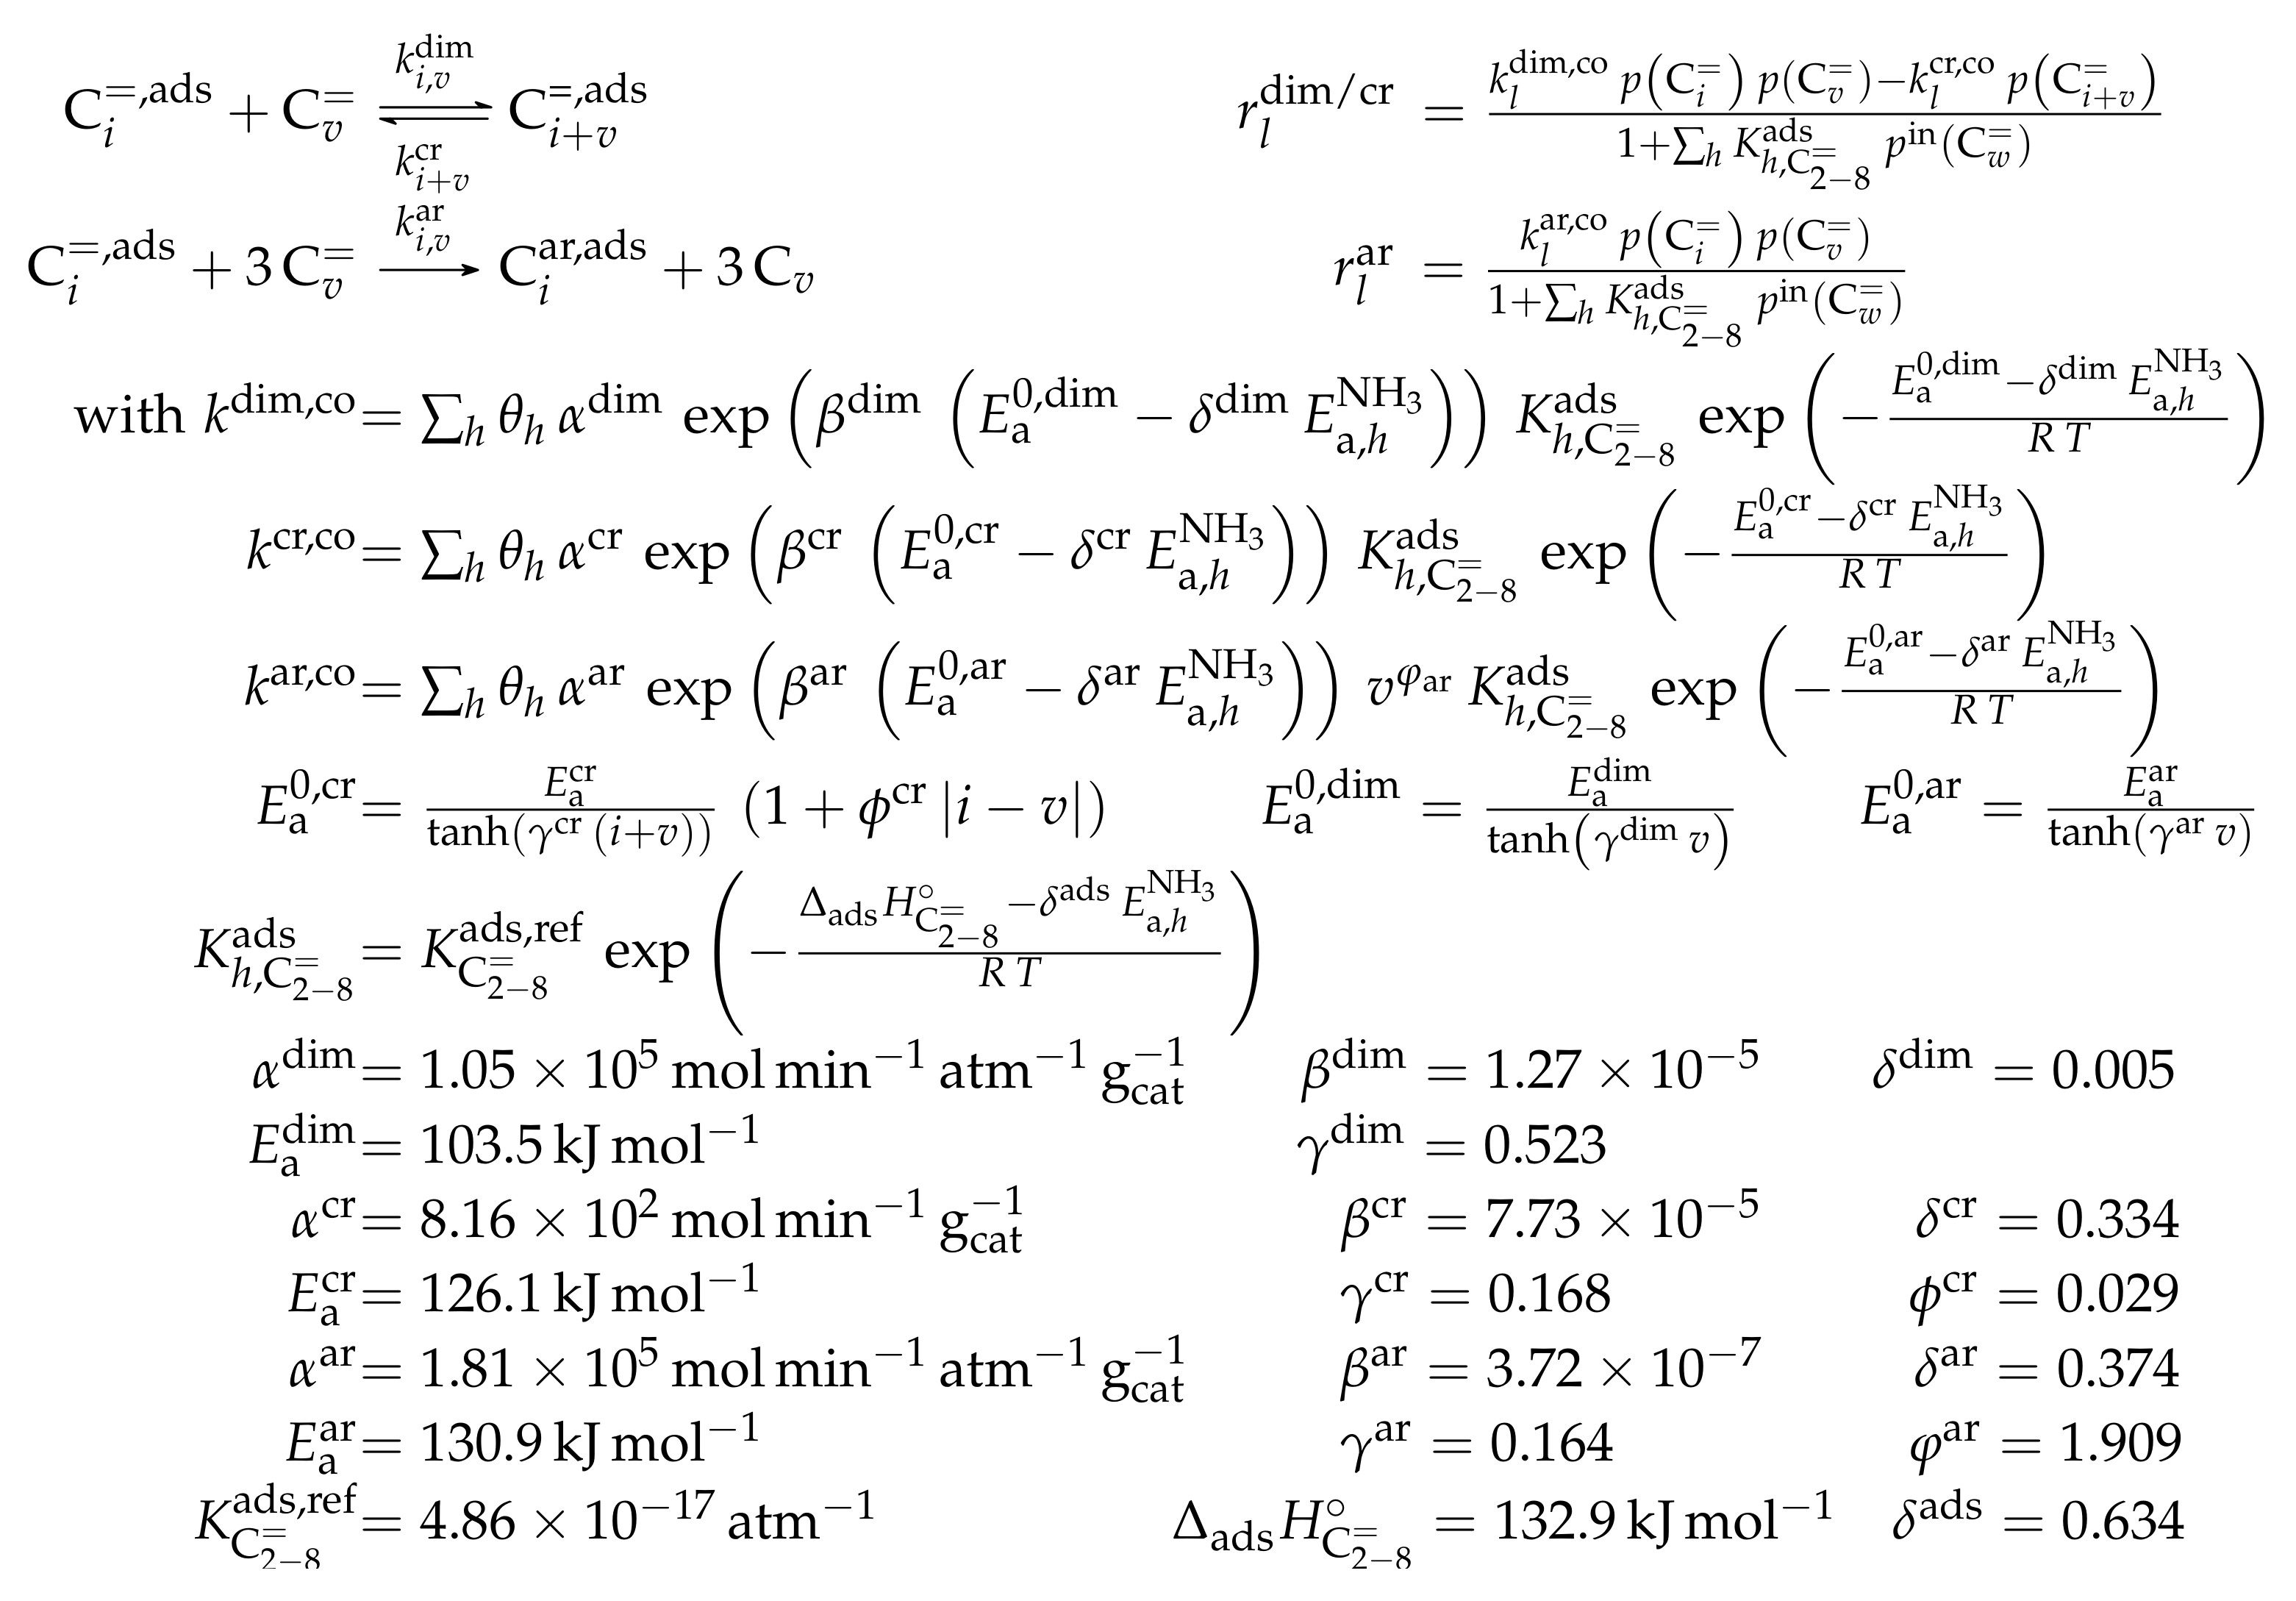 C_i^{=,ads} + C_v^= ⇌ (k_{i,v}^{dim} / k_{i+v}^{cr}) C_{i+v}^{=,ads}    r_l^{dim/cr} = \frac{k_l^{dim,co} p(C_i^=) p(C_v^=) − k_l^{cr,co} p(C_{i+v}^=)}{1+∑_h K_{h,C_{2−8}^=}^{ads} p^{in}(C_w^=)}
C_i^{=,ads} + 3 C_v^= ⟶ (k_{i,v}^{ar}) C_i^{ar,ads} + 3 C_v    r_l^{ar} = \frac{k_l^{ar,co} p(C_i^=) p(C_v^=)}{1+∑_h K_{h,C_{2−8}^=}^{ads} p^{in}(C_w^=)}
with k^{dim,co} = ∑_h θ_h α^{dim} exp(β^{dim} (E_a^{0,dim} − δ^{dim} E_{a,h}^{NH_3})) K_{h,C_{2−8}^=}^{ads} exp(−\frac{E_a^{0,dim} − δ^{dim} E_{a,h}^{NH_3}}{R T})
k^{cr,co} = ∑_h θ_h α^{cr} exp(β^{cr} (E_a^{0,cr} − δ^{cr} E_{a,h}^{NH_3})) K_{h,C_{2−8}^=}^{ads} exp(−\frac{E_a^{0,cr} − δ^{cr} E_{a,h}^{NH_3}}{R T})
k^{ar,co} = ∑_h θ_h α^{ar} exp(β^{ar} (E_a^{0,ar} − δ^{ar} E_{a,h}^{NH_3})) v^{φ_{ar}} K_{h,C_{2−8}^=}^{ads} exp(−\frac{E_a^{0,ar} − δ^{ar} E_{a,h}^{NH_3}}{R T})
E_a^{0,cr} = \frac{E_a^{cr}}{tanh(γ^{cr} (i+v))} (1 + ϕ^{cr} |i − v|)    E_a^{0,dim} = \frac{E_a^{dim}}{tanh(γ^{dim} v)}    E_a^{0,ar} = \frac{E_a^{ar}}{tanh(γ^{ar} v)}
K_{h,C_{2−8}^=}^{ads} = K_{C_{2−8}^=}^{ads,ref} exp(−\frac{Δ_{ads}H°_{C_{2−8}^=} − δ^{ads} E_{a,h}^{NH_3}}{R T})
α^{dim} = 1.05 × 10^5 mol min^{−1} atm^{−1} g_{cat}^{−1}    β^{dim} = 1.27 × 10^{−5}    δ^{dim} = 0.005
E_a^{dim} = 103.5 kJ mol^{−1}    γ^{dim} = 0.523
α^{cr} = 8.16 × 10^2 mol min^{−1} g_{cat}^{−1}    β^{cr} = 7.73 × 10^{−5}    δ^{cr} = 0.334
E_a^{cr} = 126.1 kJ mol^{−1}    γ^{cr} = 0.168    ϕ^{cr} = 0.029
α^{ar} = 1.81 × 10^5 mol min^{−1} atm^{−1} g_{cat}^{−1}    β^{ar} = 3.72 × 10^{−7}    δ^{ar} = 0.374
E_a^{ar} = 130.9 kJ mol^{−1}    γ^{ar} = 0.164    φ^{ar} = 1.909
K_{C_{2−8}^=}^{ads,ref} = 4.86 × 10^{−17} atm^{−1}    Δ_{ads}H°_{C_{2−8}^=} = 132.9 kJ mol^{−1}    δ^{ads} = 0.634